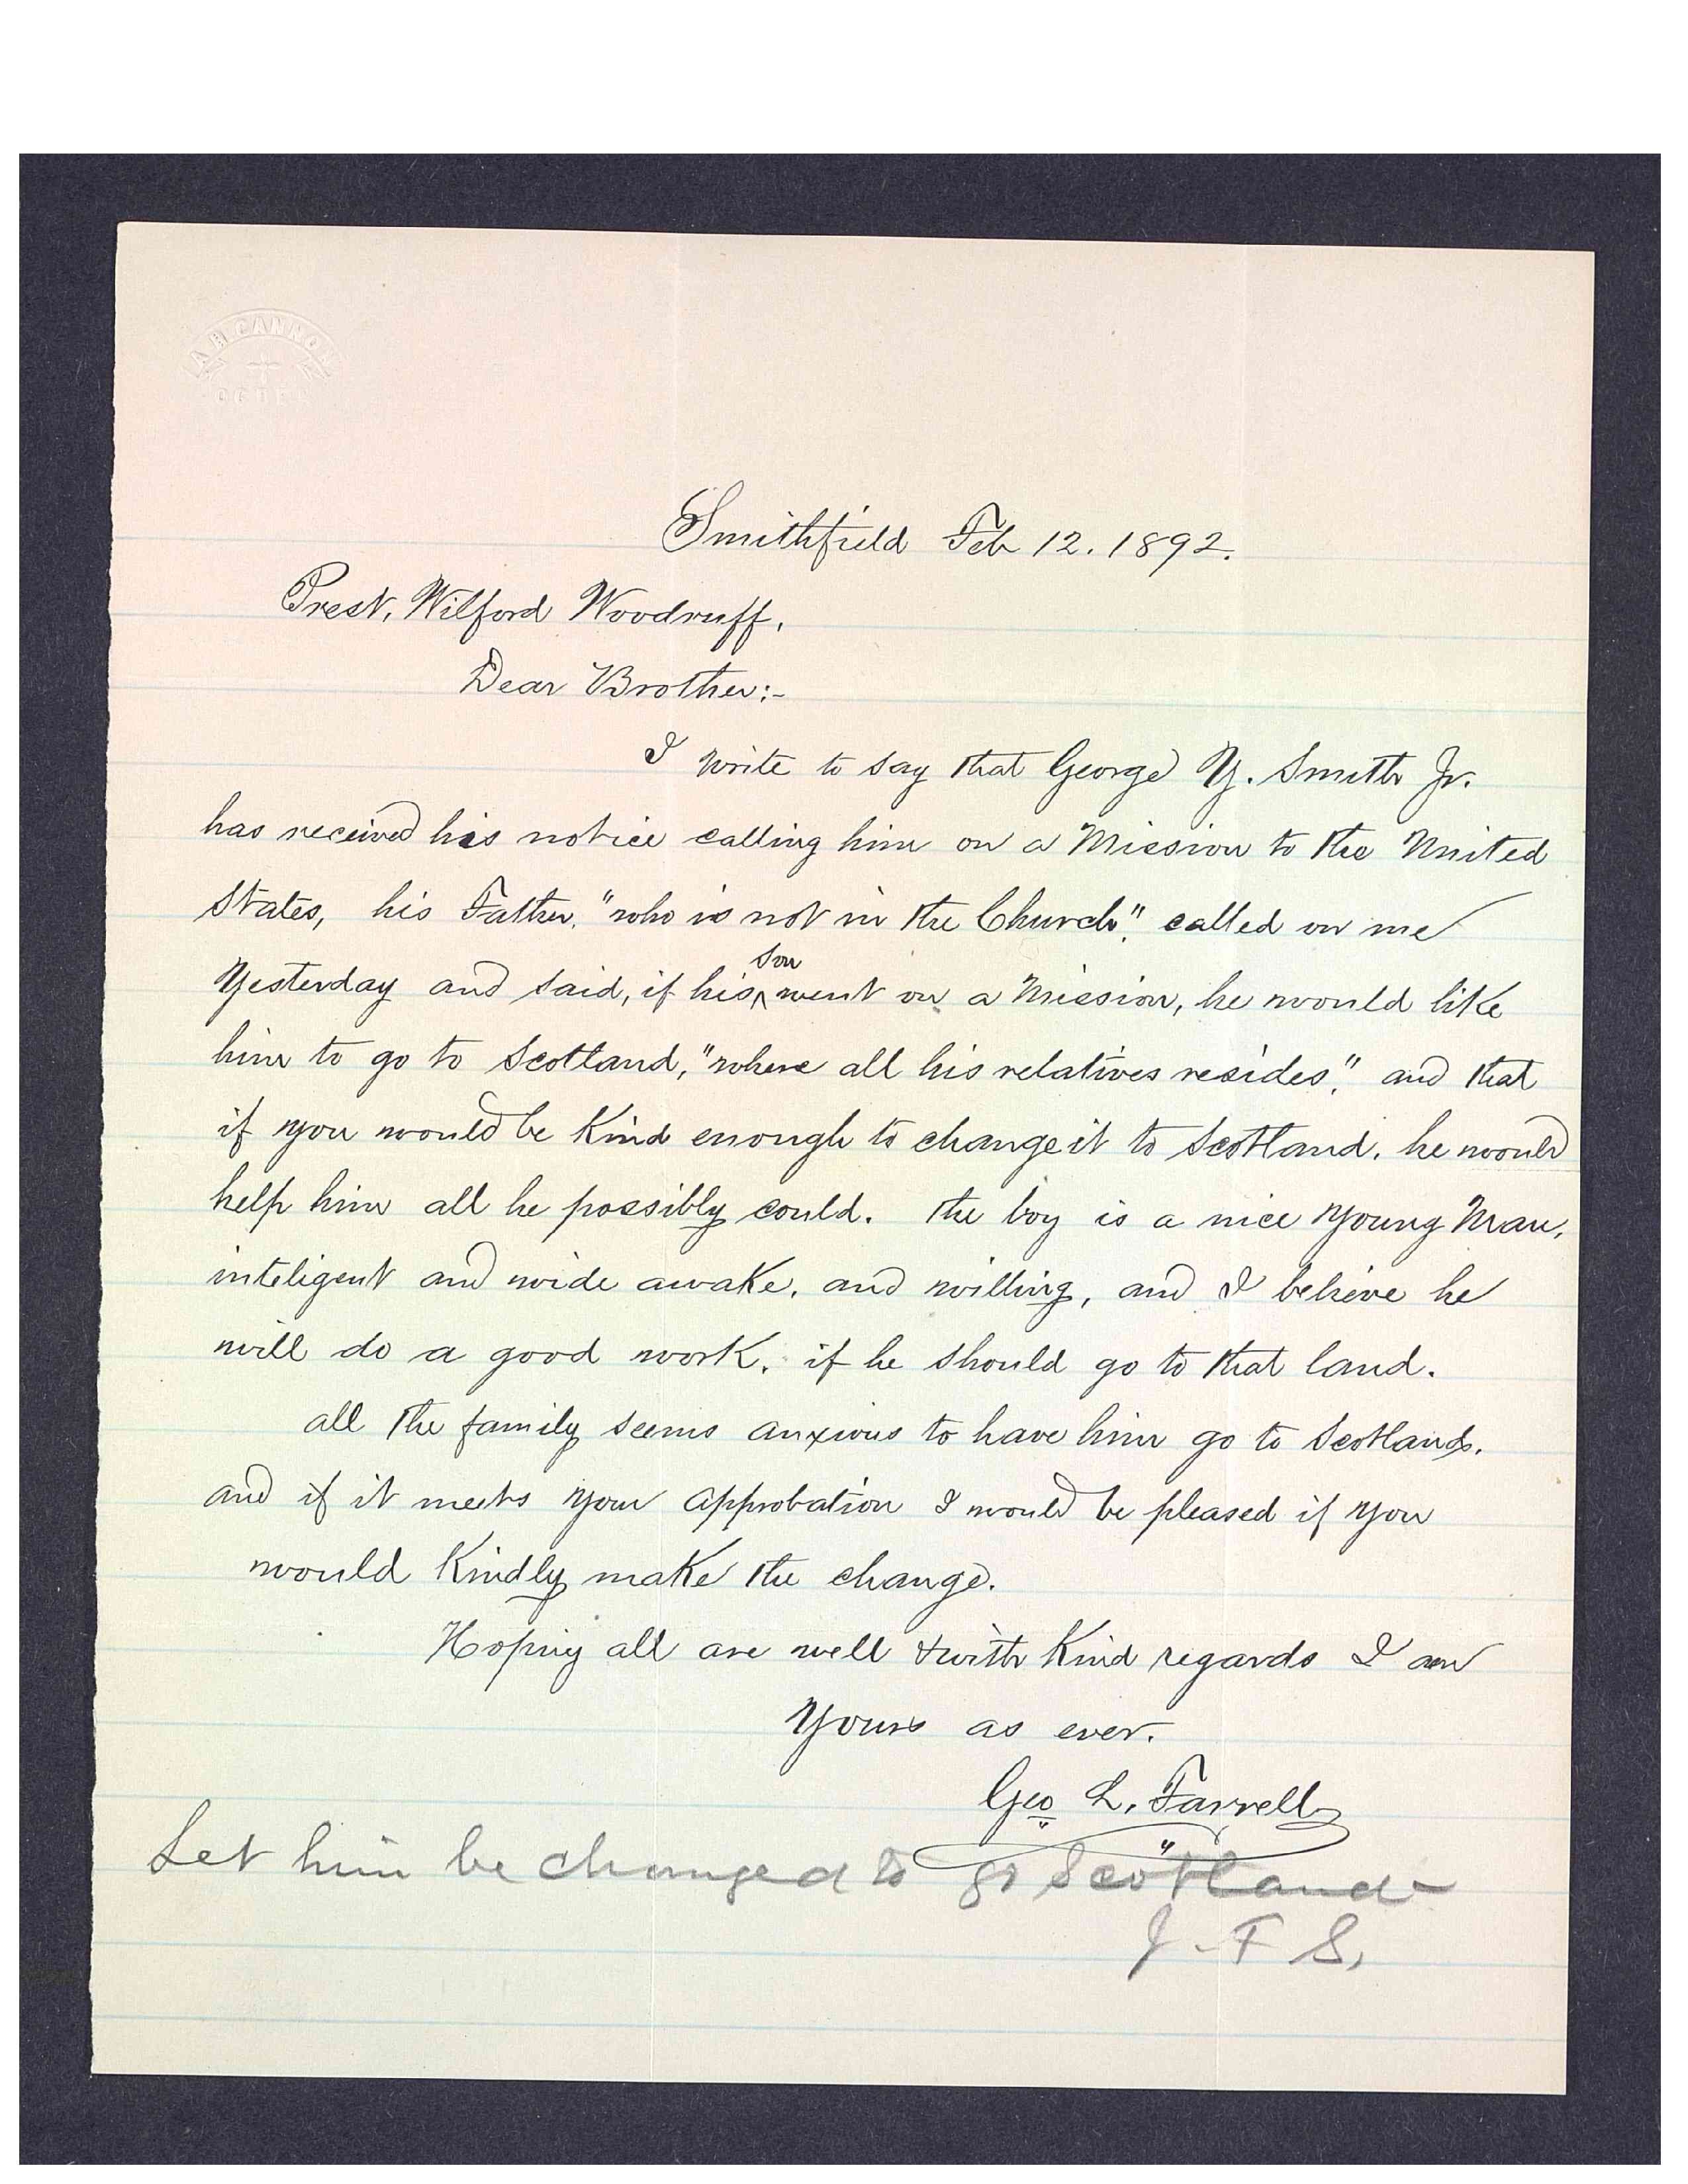 A H CANNON
OGDEN
Smithfield Feb 12. 1892.
Prest. Wilford Woodruff,
Dear Brother:-
I write to say that George Y. Smith Jr.
has received his notice calling him on a Mission to the United
States, his Father, "who is not in the Church," called on me
Yesterday and said, if his son went on a Mission, he would like
him to go to Scotland, "where all his relatives resides," and that
if you would be Kind enough to change it to Scotland, he would
help him all he possibly could. the boy is a nice Young Man,
inteligent and wide awake, and willing, and I believe he
will do a good work, if he should go to that land.
all the family seems anxious to have him go to Scotland,
and if it meets your approbation I would be pleased if you
would Kindly make the change.
Hoping all are well & with Kind regards I am
Yours as ever.
Geo L. Farrell
Let him be changed to go Scotland
J. F S,